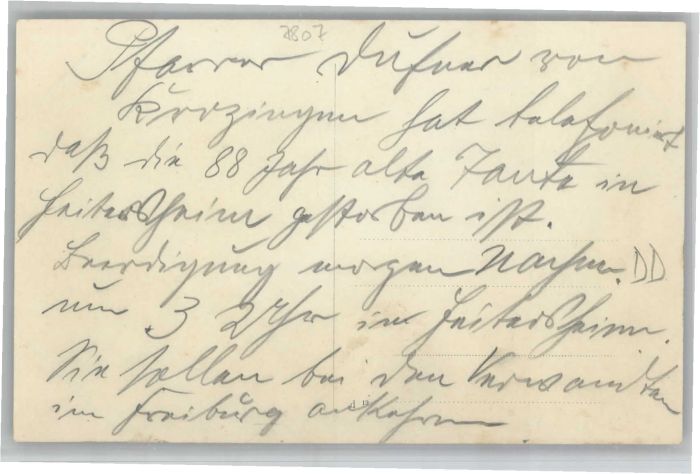 7807
Pfarrer Dufner von
Krozingen hat telefoniert
daß die 88 Jahr alte Tante in
Heitersheim gestorben ist.
Beerdigung morgen Nachm.
DD
um 3 Uhr in Heitersheim.
Sie sollen bei den Verwandten
im Freiburg ankehren